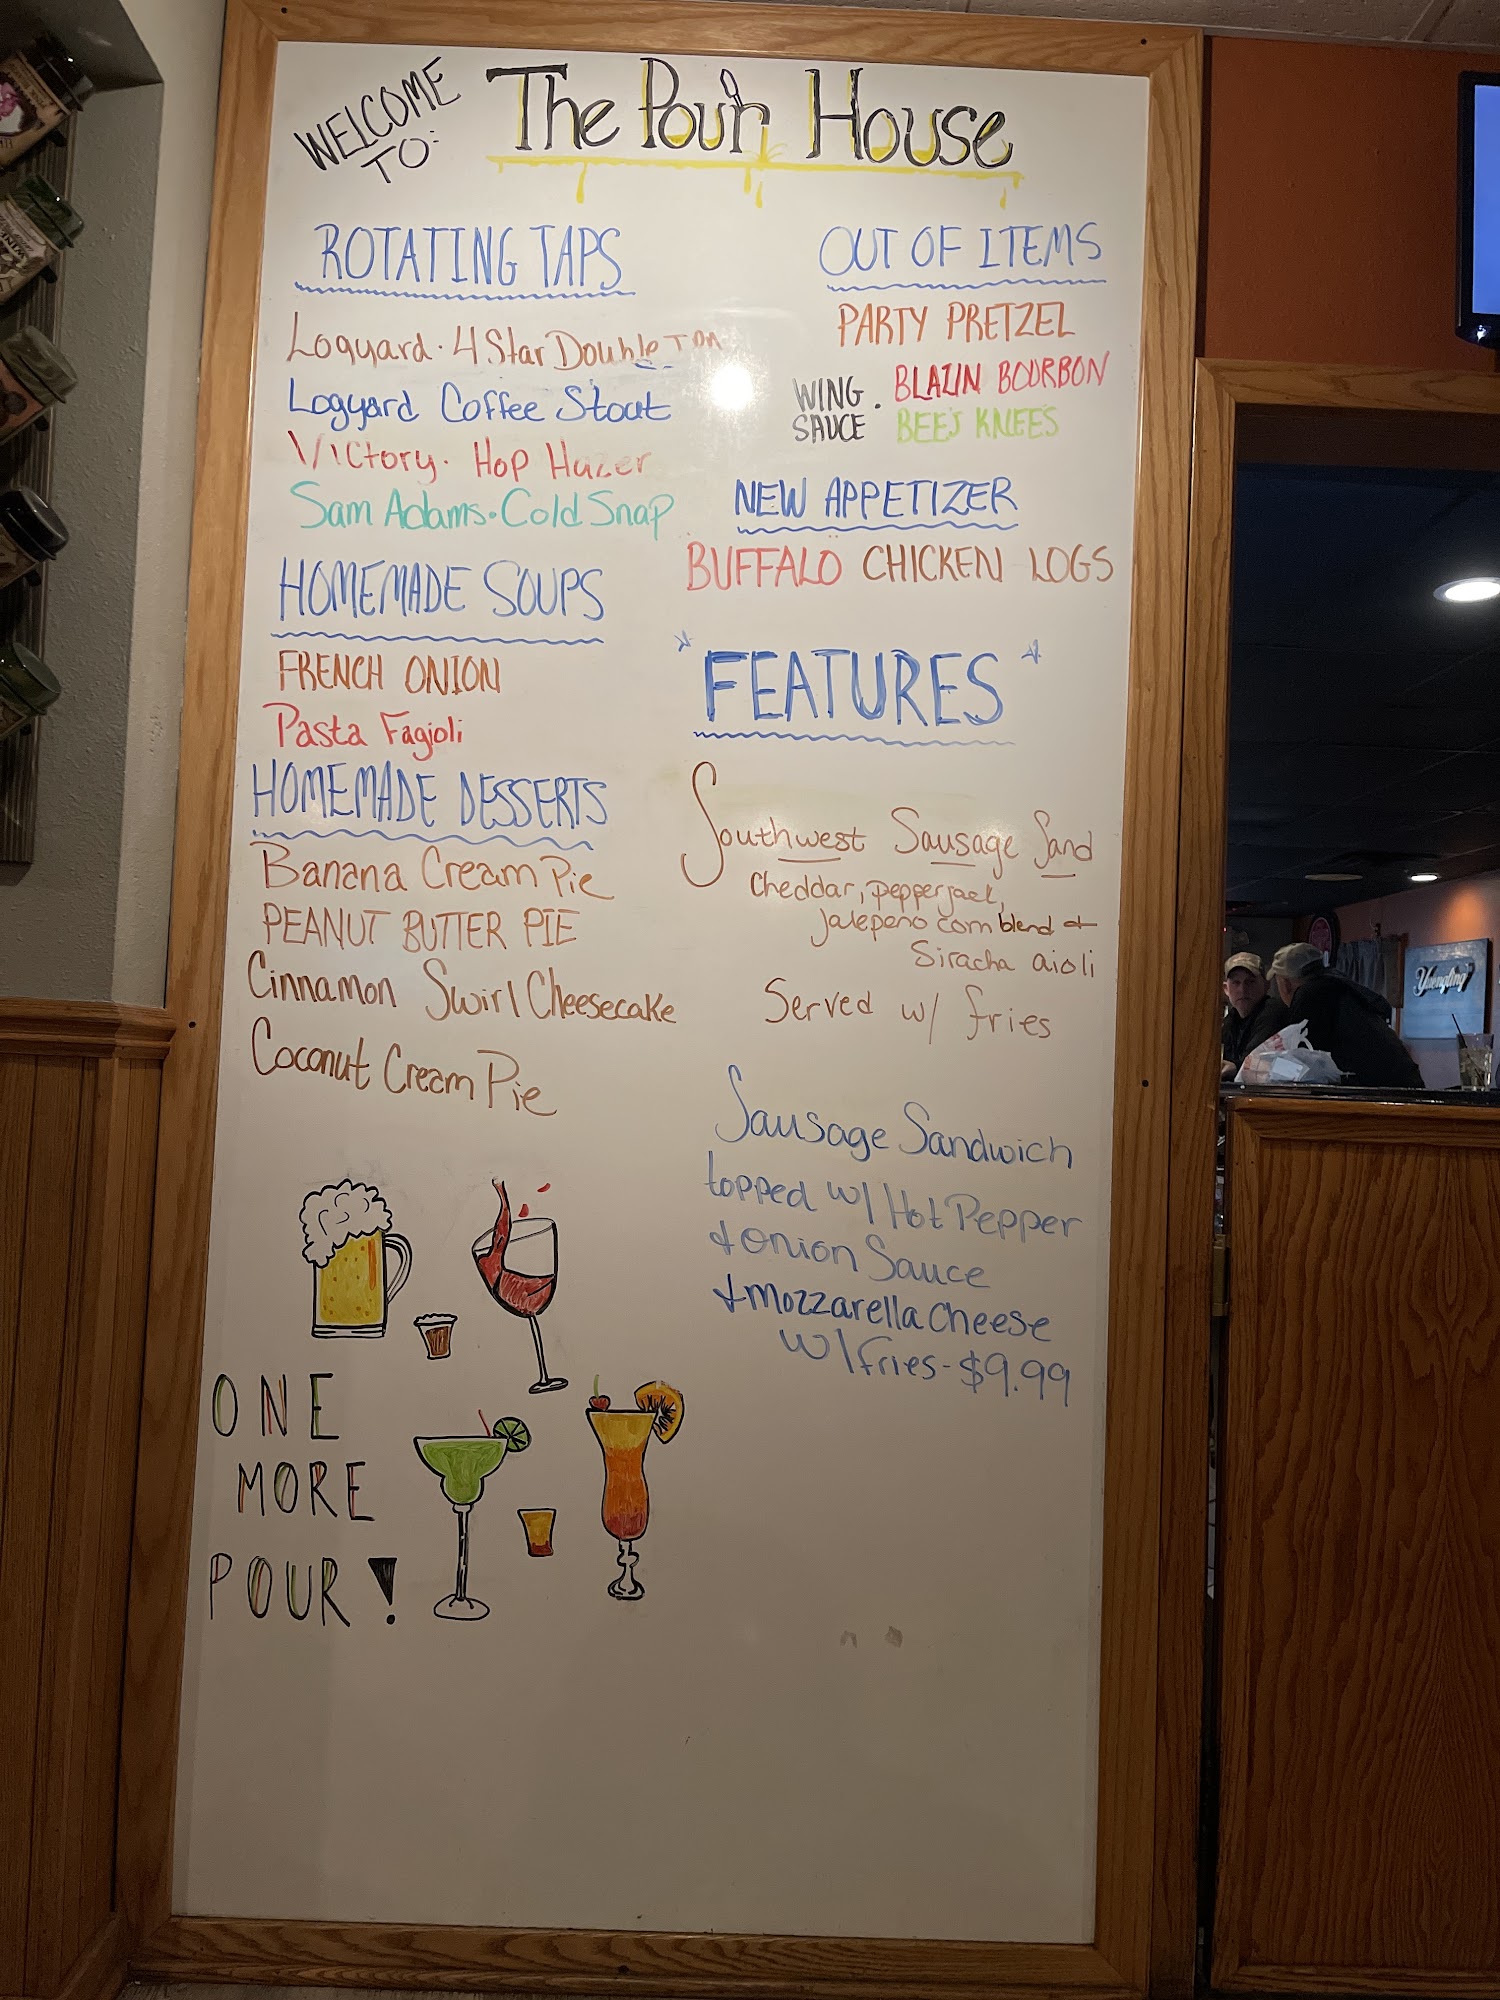 WELCOME TO:
The Pour House
ROTATING TAPS
Logyard · 4 Star Double
Logyard Coffee Stout
Victory · Hop Hazer
Sam Adams · Cold Snap
HOMEMADE SOUPS
FRENCH ONION
Pasta Fagioli
HOMEMADE DESSERTS
Banana Cream Pie
PEANUT BUTTER PIE
Cinnamon Swirl Cheesecake
Coconut Cream Pie
ONE
MORE
POUR!
OUT OF ITEMS
PARTY PRETZEL
WING SAUCE · BLAZIN BOURBON
BEE'S KNEES
NEW APPETIZER
BUFFALO CHICKEN LOGS
FEATURES
Southwest Sausage Sand
Cheddar, pepperjack,
Jalepeno corn blend +
Siracha aioli
Served w/ fries
Sausage Sandwich
topped w/ Hot Pepper
+ Onion Sauce
+ mozzarella cheese
w/ fries - $9.99
Yuengling